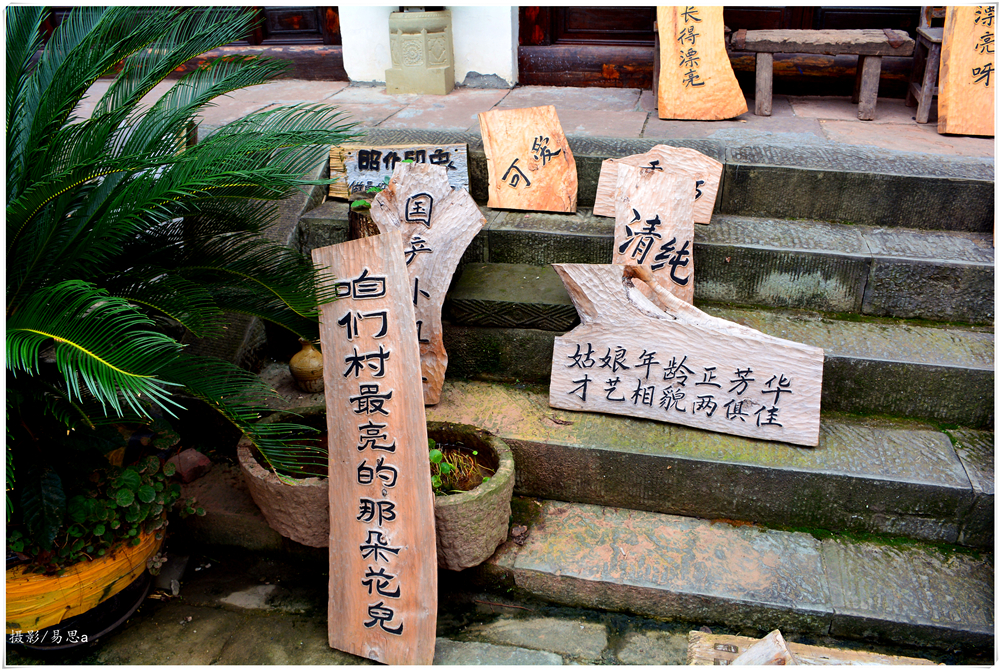 长得漂亮
漂亮呀
昭化印虫
可缓
国产小卫
清纯
咱们村最亮的那朵花兒
姑娘年龄正芳华
才艺相貌两俱佳
摄影/易思a